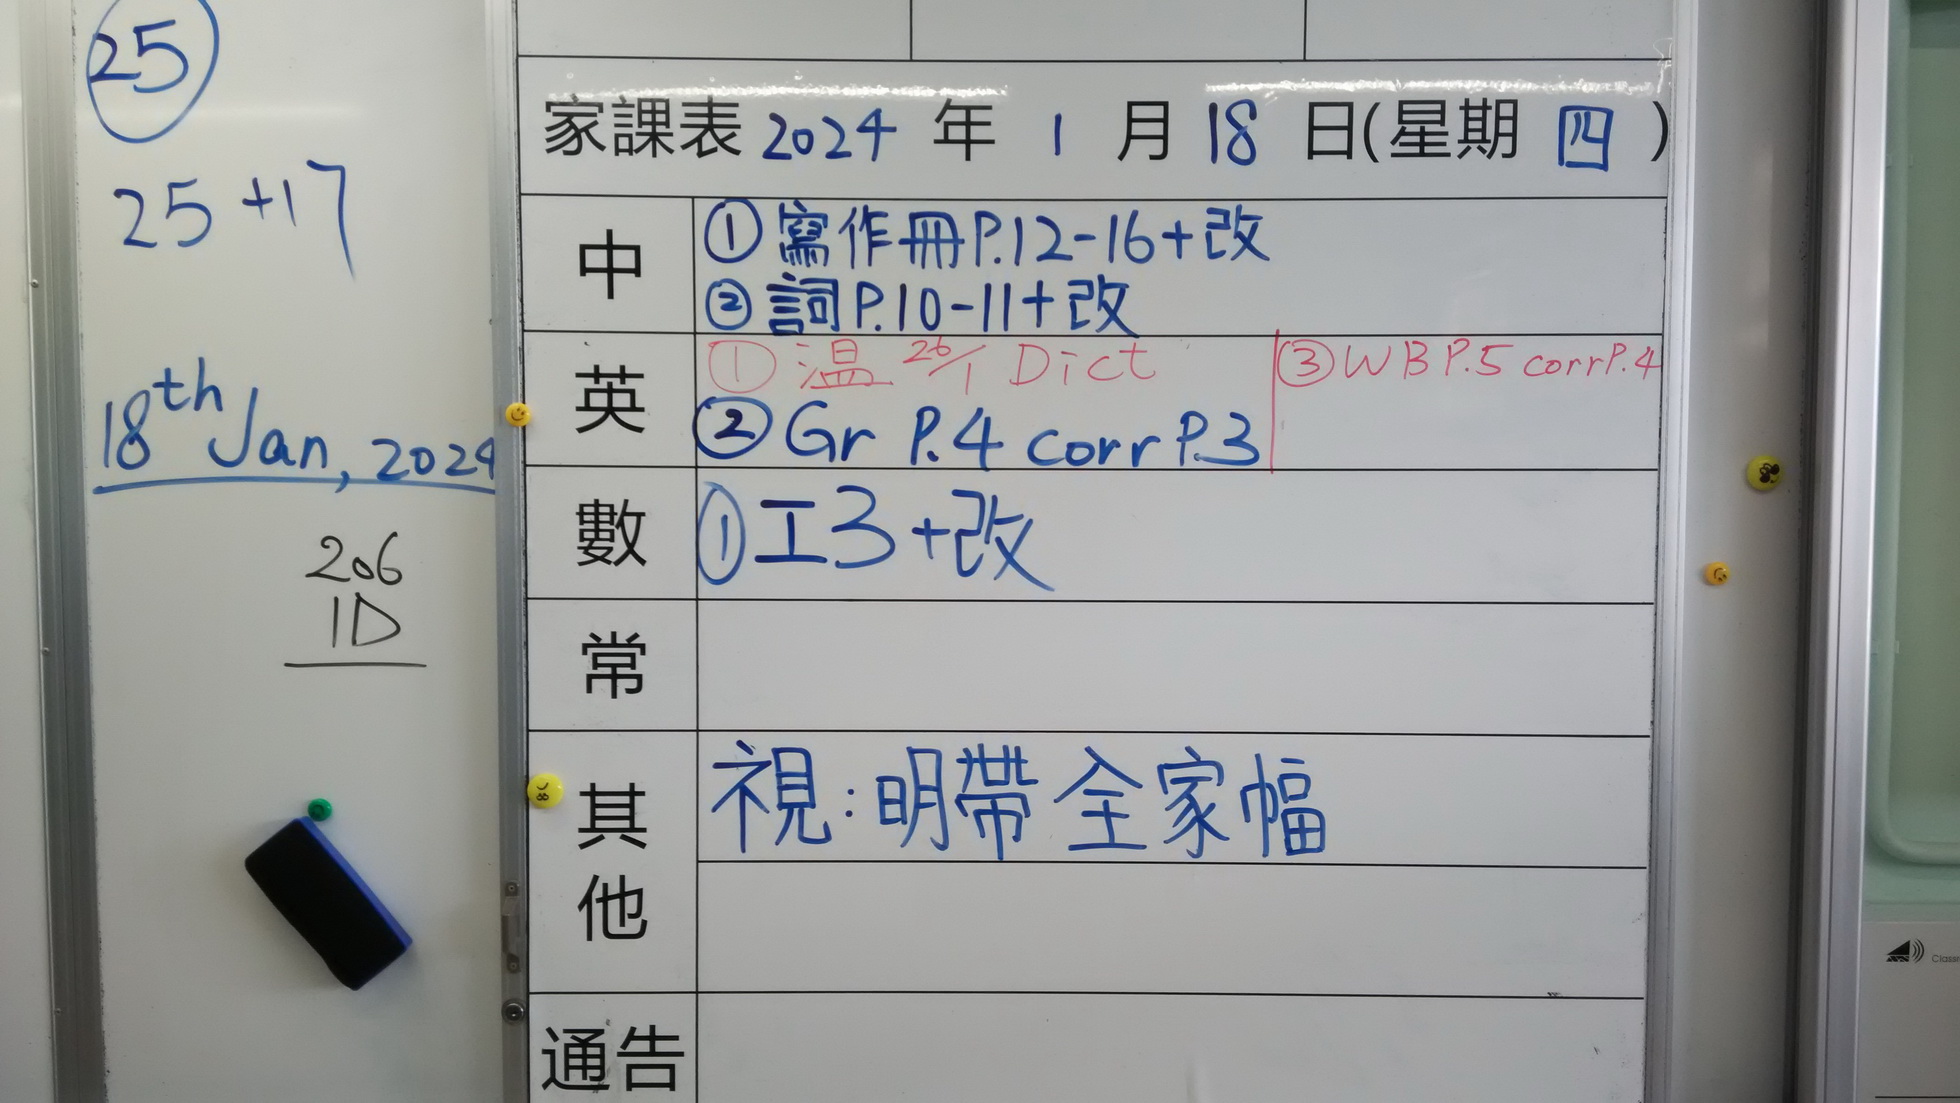 25
25+17
18th Jan, 2024
206
1D
家課表 2024 年 1 月 18 日(星期 四 )
中
① 寫作冊P.12-16+改
② 詞P.10-11+改
英
① 溫 26/1 Dict
② Gr P.4 corr P.3
③ WB P.5 corr P.4
數
① 工3+改
常
其他
視:明帶全家幅
通告